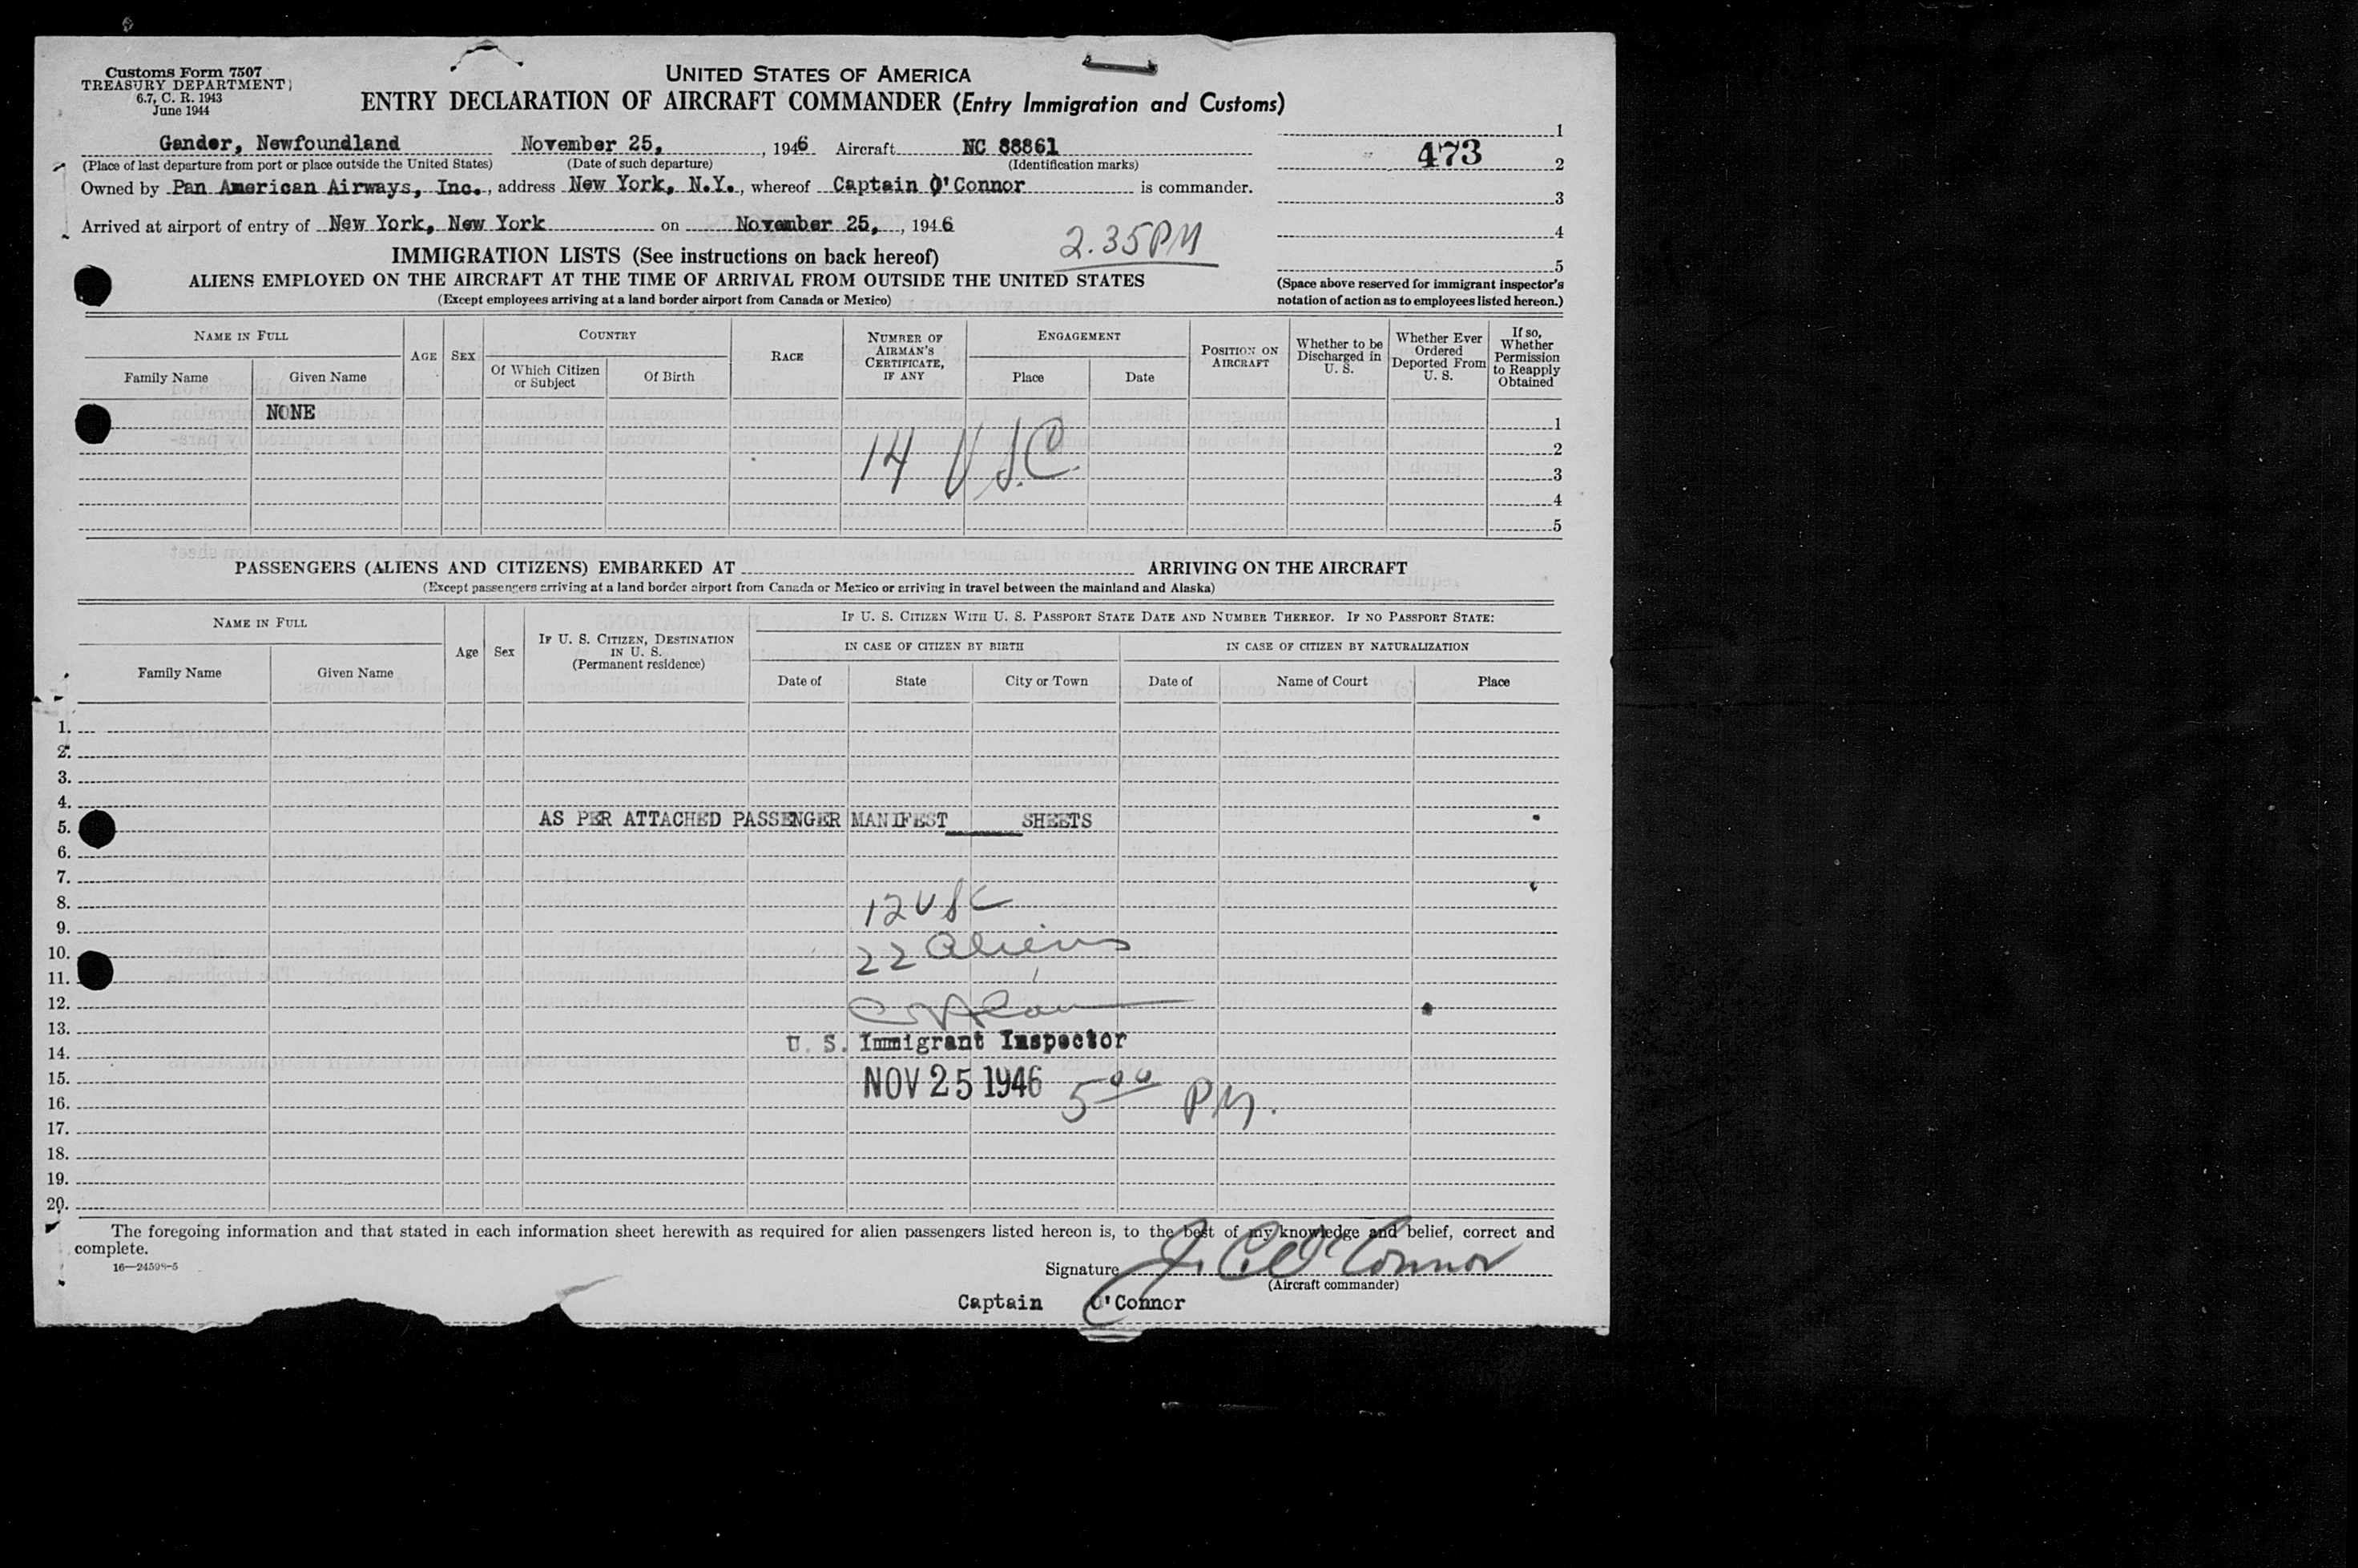 Customs Form 7507
TREASURY DEPARTMENT
6.7, C. R. 1943
June 1944
UNITED STATES OF AMERICA
ENTRY DECLARATION OF AIRCRAFT COMMANDER (Entry Immigration and Customs)
Gander, Newfoundland November 25, , 1946 Aircraft NC 88861
(Place of last departure from port or place outside the United States) (Date of such departure) (Identification marks)
Owned by Pan American Airways, Inc., address New York, N.Y., whereof Captain O'Connor is commander.
Arrived at airport of entry of New York, New York on November 25, , 1946
2.35PM
1
473 2
3
4
5
(Space above reserved for immigrant inspector's
notation of action as to employees listed hereon.)
IMMIGRATION LISTS (See instructions on back hereof)
ALIENS EMPLOYED ON THE AIRCRAFT AT THE TIME OF ARRIVAL FROM OUTSIDE THE UNITED STATES
(Except employees arriving at a land border airport from Canada or Mexico)
NAME IN FULL
Family Name Given Name
AGE SEX
COUNTRY
Of Which Citizen or Subject Of Birth
RACE
NUMBER OF AIRMAN'S CERTIFICATE, IF ANY
ENGAGEMENT
Place Date
POSITION ON AIRCRAFT
Whether to be Discharged in U. S.
Whether Ever Ordered Deported From U. S.
If so, Whether Permission to Reapply Obtained
NONE 1
2
14 USC. 3
4
5
PASSENGERS (ALIENS AND CITIZENS) EMBARKED AT ARRIVING ON THE AIRCRAFT
(Except passengers arriving at a land border airport from Canada or Mexico or arriving in travel between the mainland and Alaska)
NAME IN FULL
Family Name Given Name
Age Sex
IF U. S. CITIZEN, DESTINATION IN U. S.
(Permanent residence)
IF U. S. CITIZEN WITH U. S. PASSPORT STATE DATE AND NUMBER THEREOF. IF NO PASSPORT STATE:
IN CASE OF CITIZEN BY BIRTH IN CASE OF CITIZEN BY NATURALIZATION
Date of State City or Town Date of Name of Court Place
1.
2.
3.
4.
5. AS PER ATTACHED PASSENGER MANIFEST SHEETS
6.
7.
8. 12 USC
9.
10. 22 aliens
11.
12.
13.
14. U. S. Immigrant Inspector
15. NOV 25 1946 5 00 PM.
16.
17.
18.
19.
20.
The foregoing information and that stated in each information sheet herewith as required for alien passengers listed hereon is, to the best of my knowledge and belief, correct and
complete.
16—24598-5
Signature J. C. O'Connor
(Aircraft commander)
Captain O'Connor